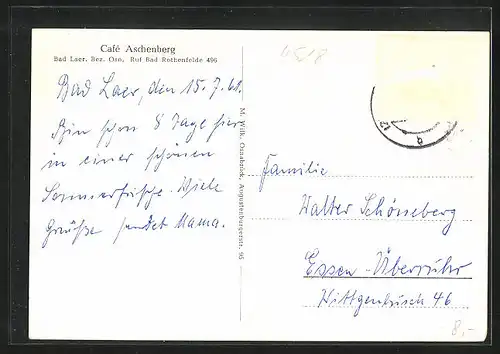 Café Aschenberg
Bad Laer, Bez. Osn. Ruf Bad Rothenfelde 496
Bad Laer, den 15.7.61.
Bin schon 8 Tage hier
in einer schönen
Sommerfrische. Viele
Grüße sendet Mama.
M. Wilk, Osnabrück, Augustenburgerstr. 95
Familie
Walter Schöneberg
Essen-Überruhr
Wittgenbusch 46
8,-